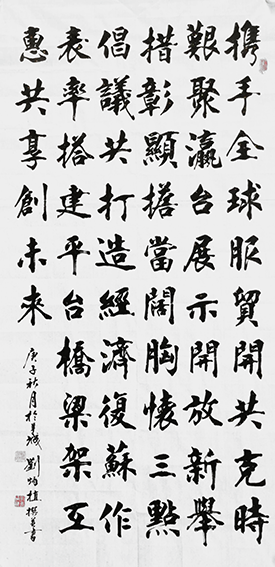 携手全球服貿開共克時
艱聚瀛台展示開放新舉
措彰顯擔當闊胸懷三點
倡議共打造經濟復蘇作
表率搭建平台橋梁架互
惠共享創未來
庚子秋月於羊城 劉植撰並書